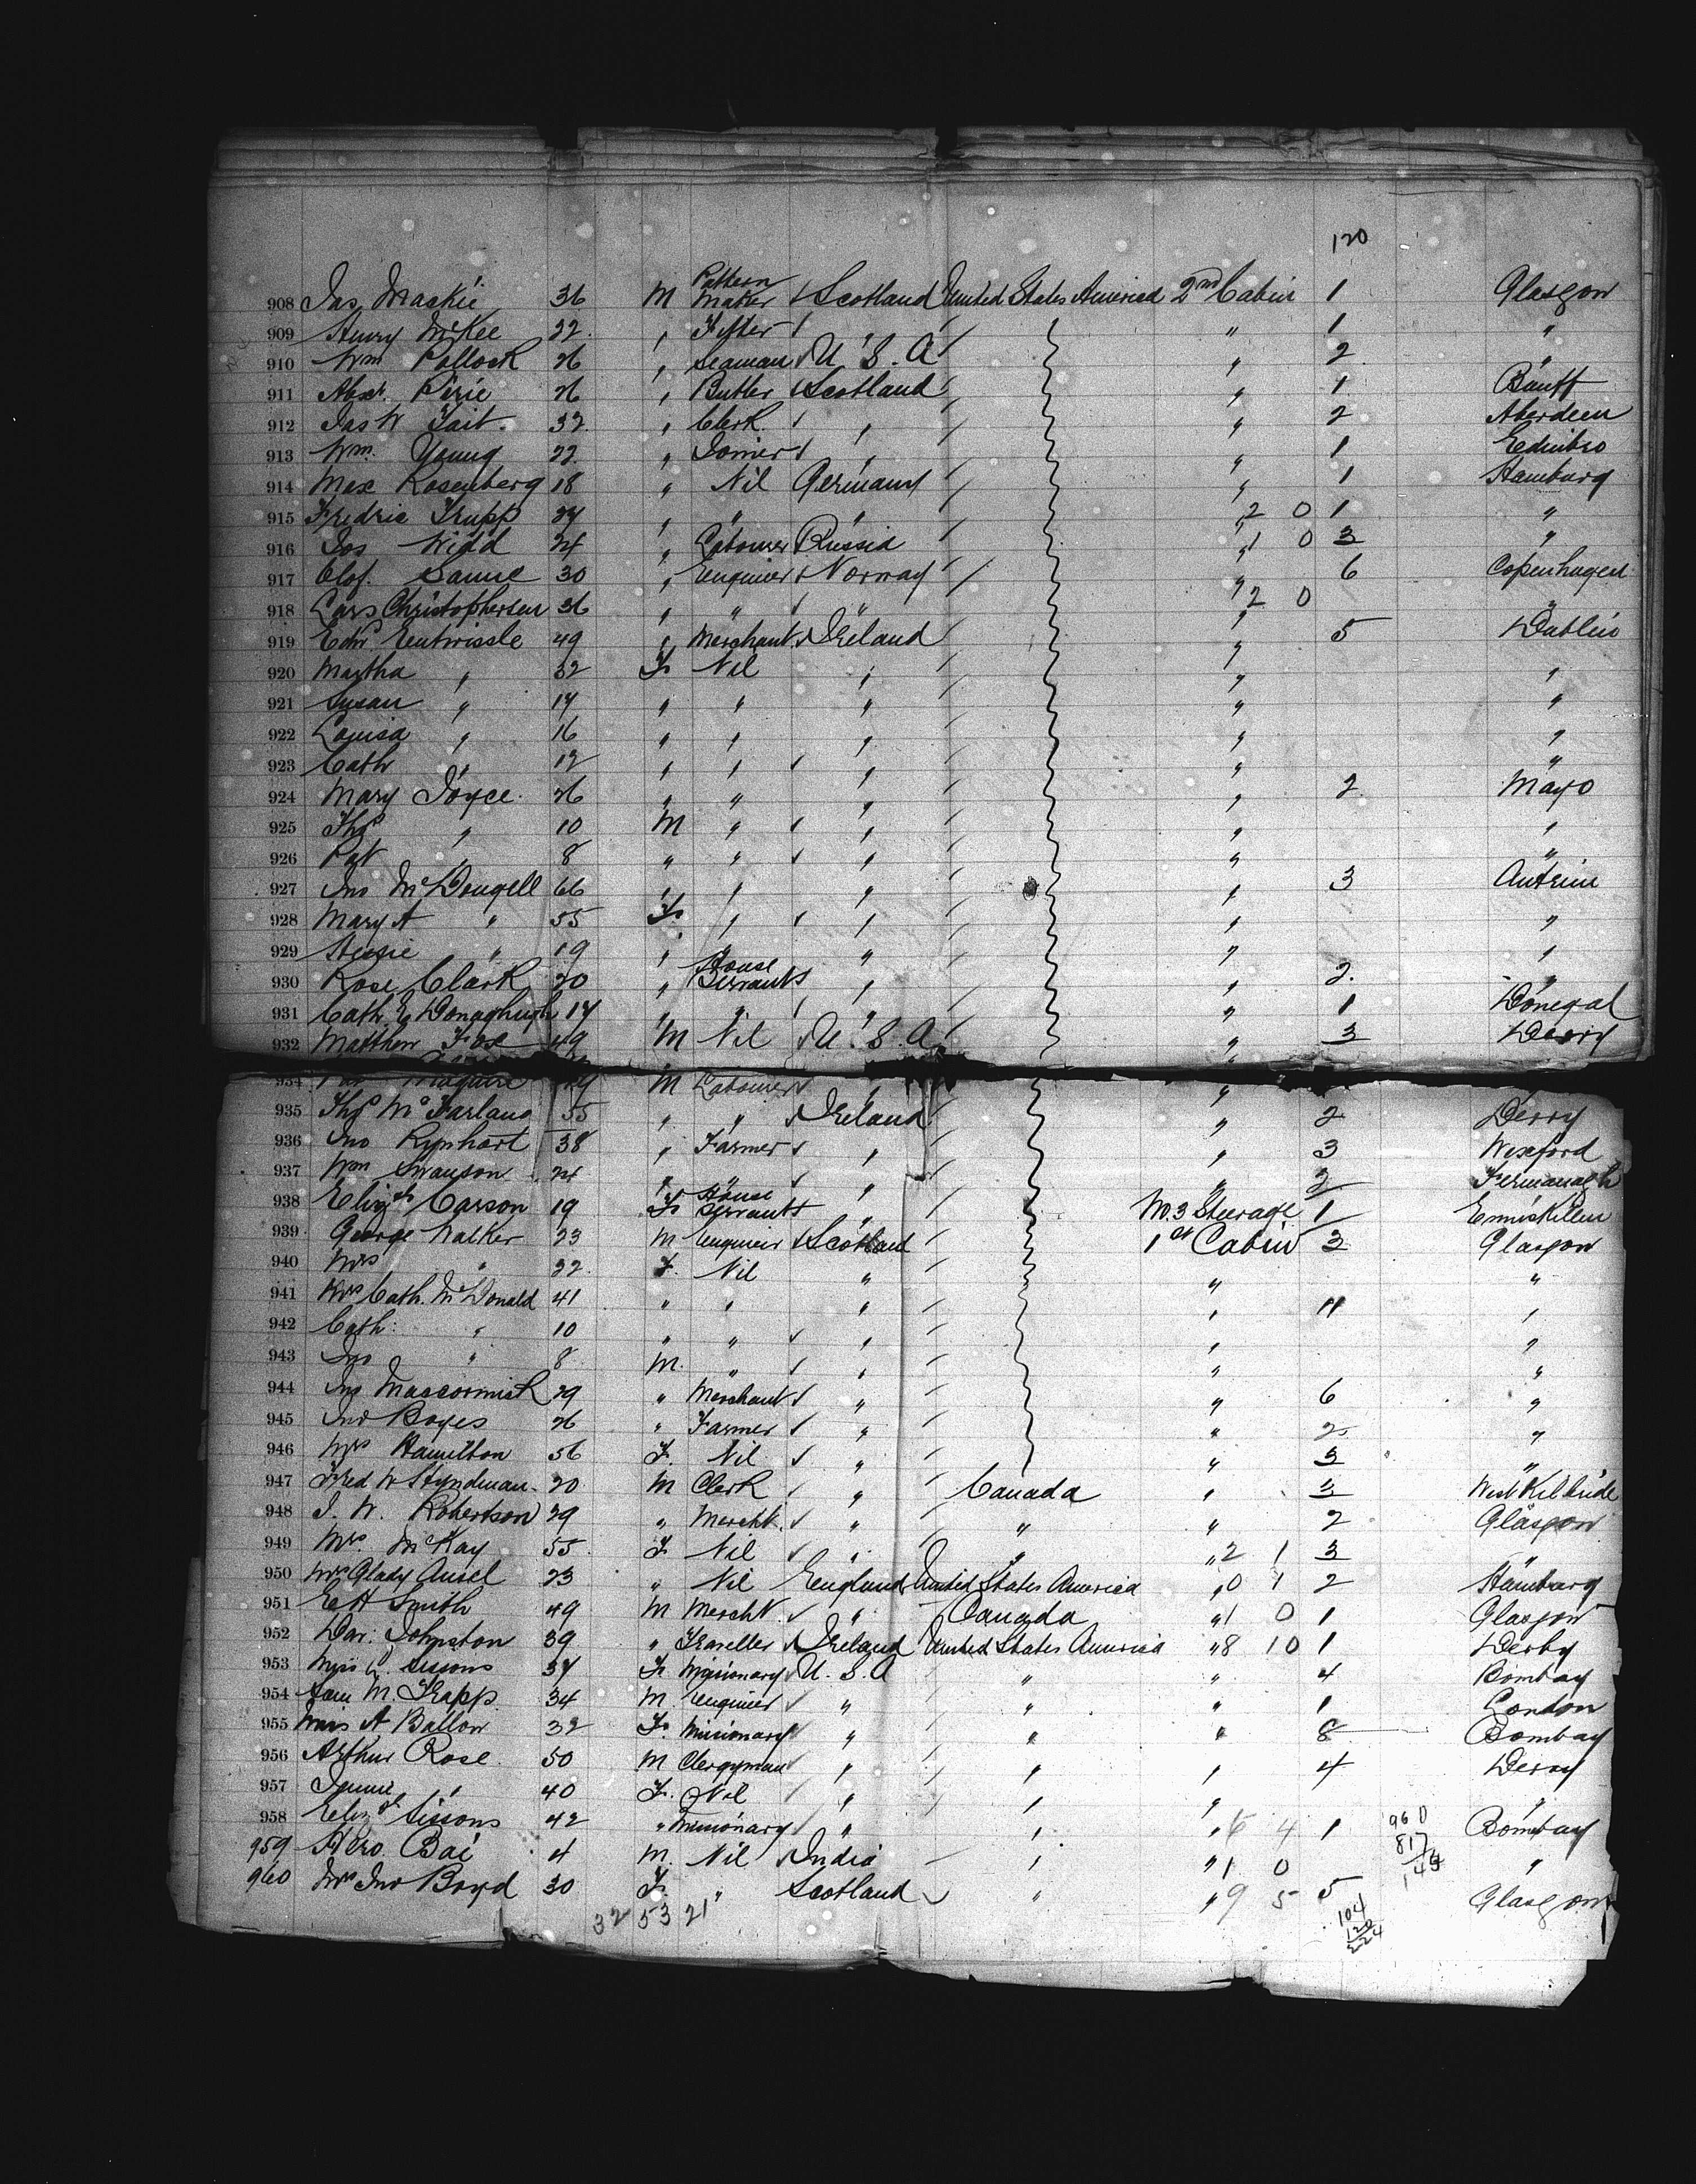 120
908 Jas. Mackie 36 M Pattern Maker Scotland United States America 2nd Cabin 1 Glasgow
909 Henry McKee 22 " Fitter " 1 "
910 Wm Pollock 26 " Seaman U. S. A " 2 "
911 Alexr. Pirie 26 " Butler Scotland " 1 Banff
912 Jas W Tait 32 " Clerk " " 2 Aberdeen
913 Wm. Young 22 " Joiner " " 1 Edinbro
914 Max Rosenberg 18 " Nil Germany " 1 Hamburg
915 Fredric Trupp " " " " 2 0 1 "
916 Jos 24 " Labourer Russia " 1 0 3 "
917 Olof. 30 " Engineer Norway " 6 Copenhagen
918 Lars Christophersen 36 " " " " 2 0 "
919 Edwd Entwissle 49 " Merchant Ireland " 5 Dublin
920 Martha " 32 F Nil " " "
921 Susan " 17 " " " " "
922 Louisa " 16 " " " " "
923 Cath " 12 " " " " "
924 Mary Joyce 26 " " " " 2 Mayo
925 Thos " 10 M " " " "
926 Pat " 8 " " " " "
927 Jno McDougell 66 " " " " 3 Antrim
928 Mary A " 55 F " " " "
929 " 19 " " " " "
930 Rose Clark 20 " House Servant " " 2 "
931 Cath E Donaghugh 17 " " " " 1 Donegal
932 Matthew Fox 49 M Nil U. S. A. " 3 Derry
934 Maguire M Labourer " "
935 Thos McFarland 55 " " Ireland " 2 Derry
936 Jno Rynhart 38 " Farmer " " 3 Wexford
937 Wm Swanson 24 " " " " 2 Fermanagh
938 Elizth Carson 19 F House Servant " No 3 Steerage 1 Enniskillen
939 George Walker 23 M Engineer Scotland 1st Cabin 3 Glasgow
940 Mrs " 22 F. Nil " " "
941 Mrs Cath. McDonald 41 " " " " 11 "
942 Cath: " 10 " " " " "
943 Jno " 8 M. " " " "
944 Jno Mascormick 29 " Merchant " " 6 "
945 Jno Boyes 26 " Farmer " " 2 "
946 Mrs Hamilton 56 F. Nil " " 3 "
947 Fred W 20 M Clerk " Canada " 3 West Kilbride
948 J. W. Robertson 29 " Mercht. " " " 2 Glasgow
949 Mrs. McKay 55 F Nil " " " 2 1 3 "
950 Mrs Glady Ansel 23 " Nil England United States America " 0 1 2 Hamburg
951 E H Smith 49 M Mercht. " Canada " 1 0 1 Glasgow
952 Dav: Johnston 39 " Traveller Ireland United States America " 8 10 1 Derby
953 Miss Sissons 37 F Missionary U. S. A " " 4 Bombay
954 Sam M. Trapp 34 M Engineer " " " 1 London
955 Miss A Ballow 32 F. Missionary " " " 8 Bombay
956 Arthur Rose 50 M Clergyman " " " 4 Derry
957 Jennie " 40 F. Nil " " " "
958 Elizth Sissons 42 " Missionary " " " 6 4 1 Bombay
960
817
143
959 Hero Bai 4 M. Nil India " " 1 0 "
960 Mrs Jno Boyd 30 F. " Scotland " " 9 5 5 Glasgow
32 53 21
104
120
224